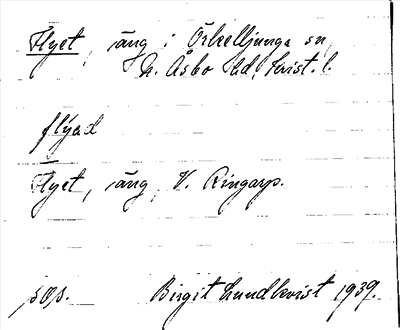 Flyet, äng i Örkelljunga sn,
N. Åsbo hd, Krist. l.
flýad
Flyet, äng, V. Ringarp.
sOs. Birgit Lundkvist 1939.